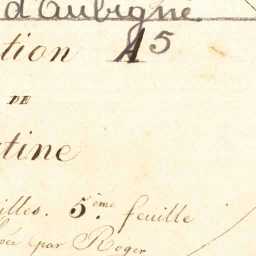 d'Aubigné
tion A5
DE
tine
illes. 5ème feuille
par Roger